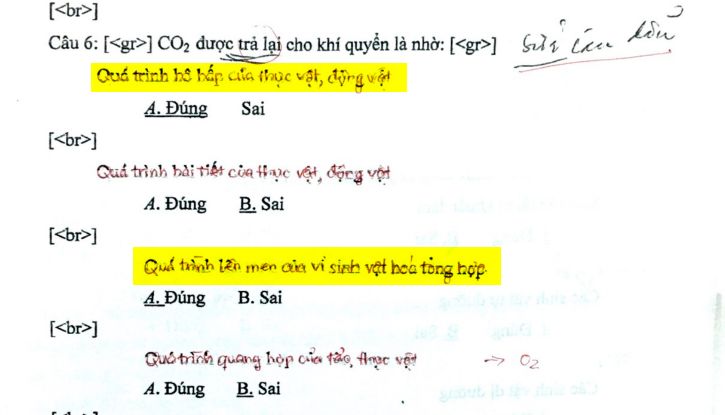 [<br>]
Câu 6: [<gr>] CO₂ được trả lại cho khí quyển là nhờ: [<gr>] sửa câu dẫn
Quá trình hô hấp của thực vật, động vật
A. Đúng Sai
[<br>]
Quá trình bài tiết của thực vật, động vật
A. Đúng B. Sai
[<br>]
Quá trình lên men của vi sinh vật hoá tổng hợp.
A. Đúng B. Sai
[<br>]
Quá trình quang hợp của tảo, thực vật → O₂
A. Đúng B. Sai